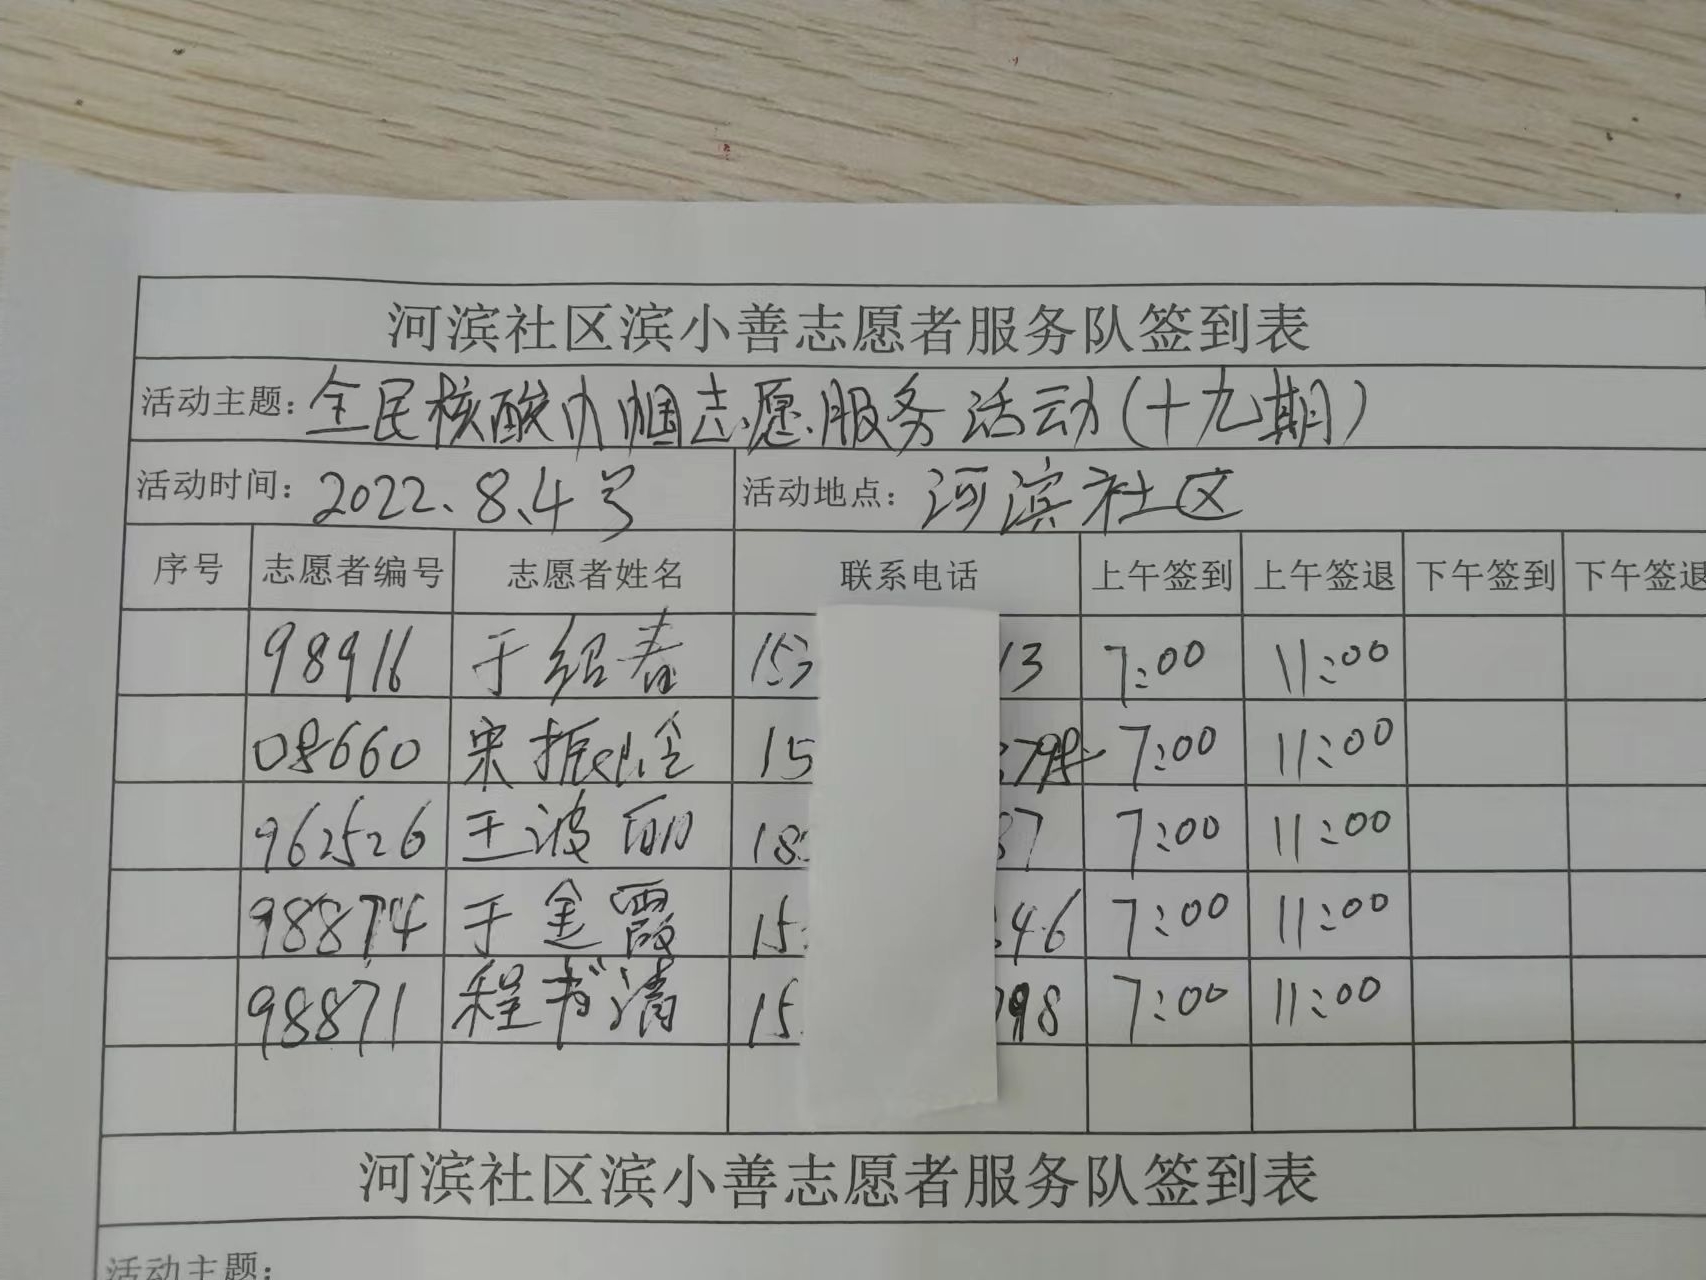 河滨社区滨小善志愿者服务队签到表
活动主题：全民核酸巾帼志愿服务活动(十九期)
活动时间：2022.8.4号 活动地点：河滨社区
序号 志愿者编号 志愿者姓名 联系电话 上午签到 上午签退 下午签到 下午签退
98916 于绍春 153 13 7:00 11:00
08660 宋振 15 798 7:00 11:00
962526 王波丽 18 37 7:00 11:00
98874 于金霞 15 46 7:00 11:00
98871 程书清 15 98 7:00 11:00
河滨社区滨小善志愿者服务队签到表
活动主题：